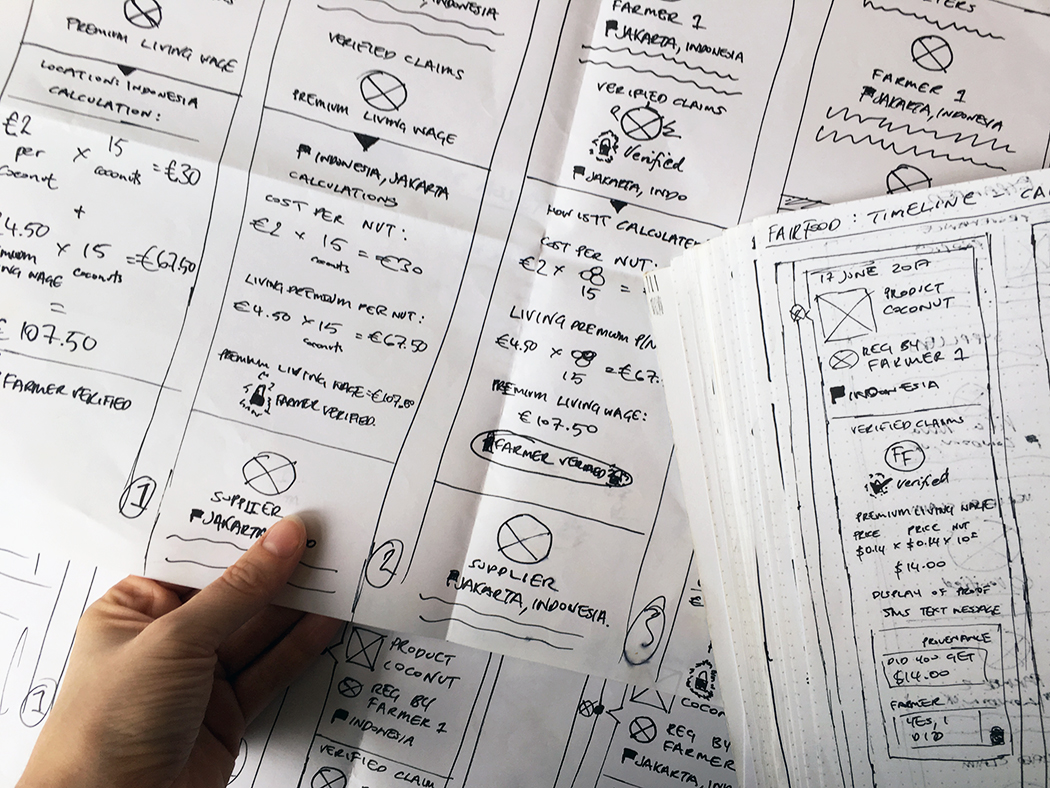 PREMIUM LIVING WAGE
LOCATION: INDONESIA
CALCULATION:
€2 per coconut × 15 coconuts = €30
+
4.50 × 15 coconuts = €67.50
=
€107.50
FARMER VERIFIED
1
INDONESIA
VERIFIED CLAIMS
PREMIUM LIVING WAGE
INDONESIA, JAKARTA
CALCULATIONS
COST PER NUT:
€2 × 15 = €30
coconuts
LIVING PREMIUM PER NUT:
€4.50 × 15 = €67.50
coconuts
PREMIUM LIVING WAGE = €107.50
FARMER VERIFIED.
SUPPLIER
JAKARTA
2
FARMER 1
JAKARTA, INDONESIA
VERIFIED CLAIMS
Verified
JAKARTA, INDO
HOW IS IT CALCULATE
COST PER NUT:
€2 ×
15 =
LIVING PREMIUM P/N
€4.50 ×
15 = €67.
PREMIUM LIVING WAGE:
€107.50
FARMER VERIFIED
SUPPLIER
JAKARTA, INDONESIA.
3
FARMER 1
JAKARTA, INDONESIA
FAIRFOOD: TIMELINE
17 JUNE 2017
PRODUCT
COCONUT
REG BY
FARMER 1
INDONESIA
VERIFIED CLAIMS
FF
Verified
PREMIUM LIVING WAGE:
PRICE PRICE NUT
$0.14 × $0.14 ×
$14.00
DISPLAY OF PROOF
SMS TEXT MESSAGE
PROVENANCE
DID YOU GET
$14.00
FARMER
YES, I
DID
1
PRODUCT
COCONUT
REG BY
FARMER 1
INDONESIA
VERIFIED CLAIM
COCON
REG BY
FARMER
JAKARTA, IND